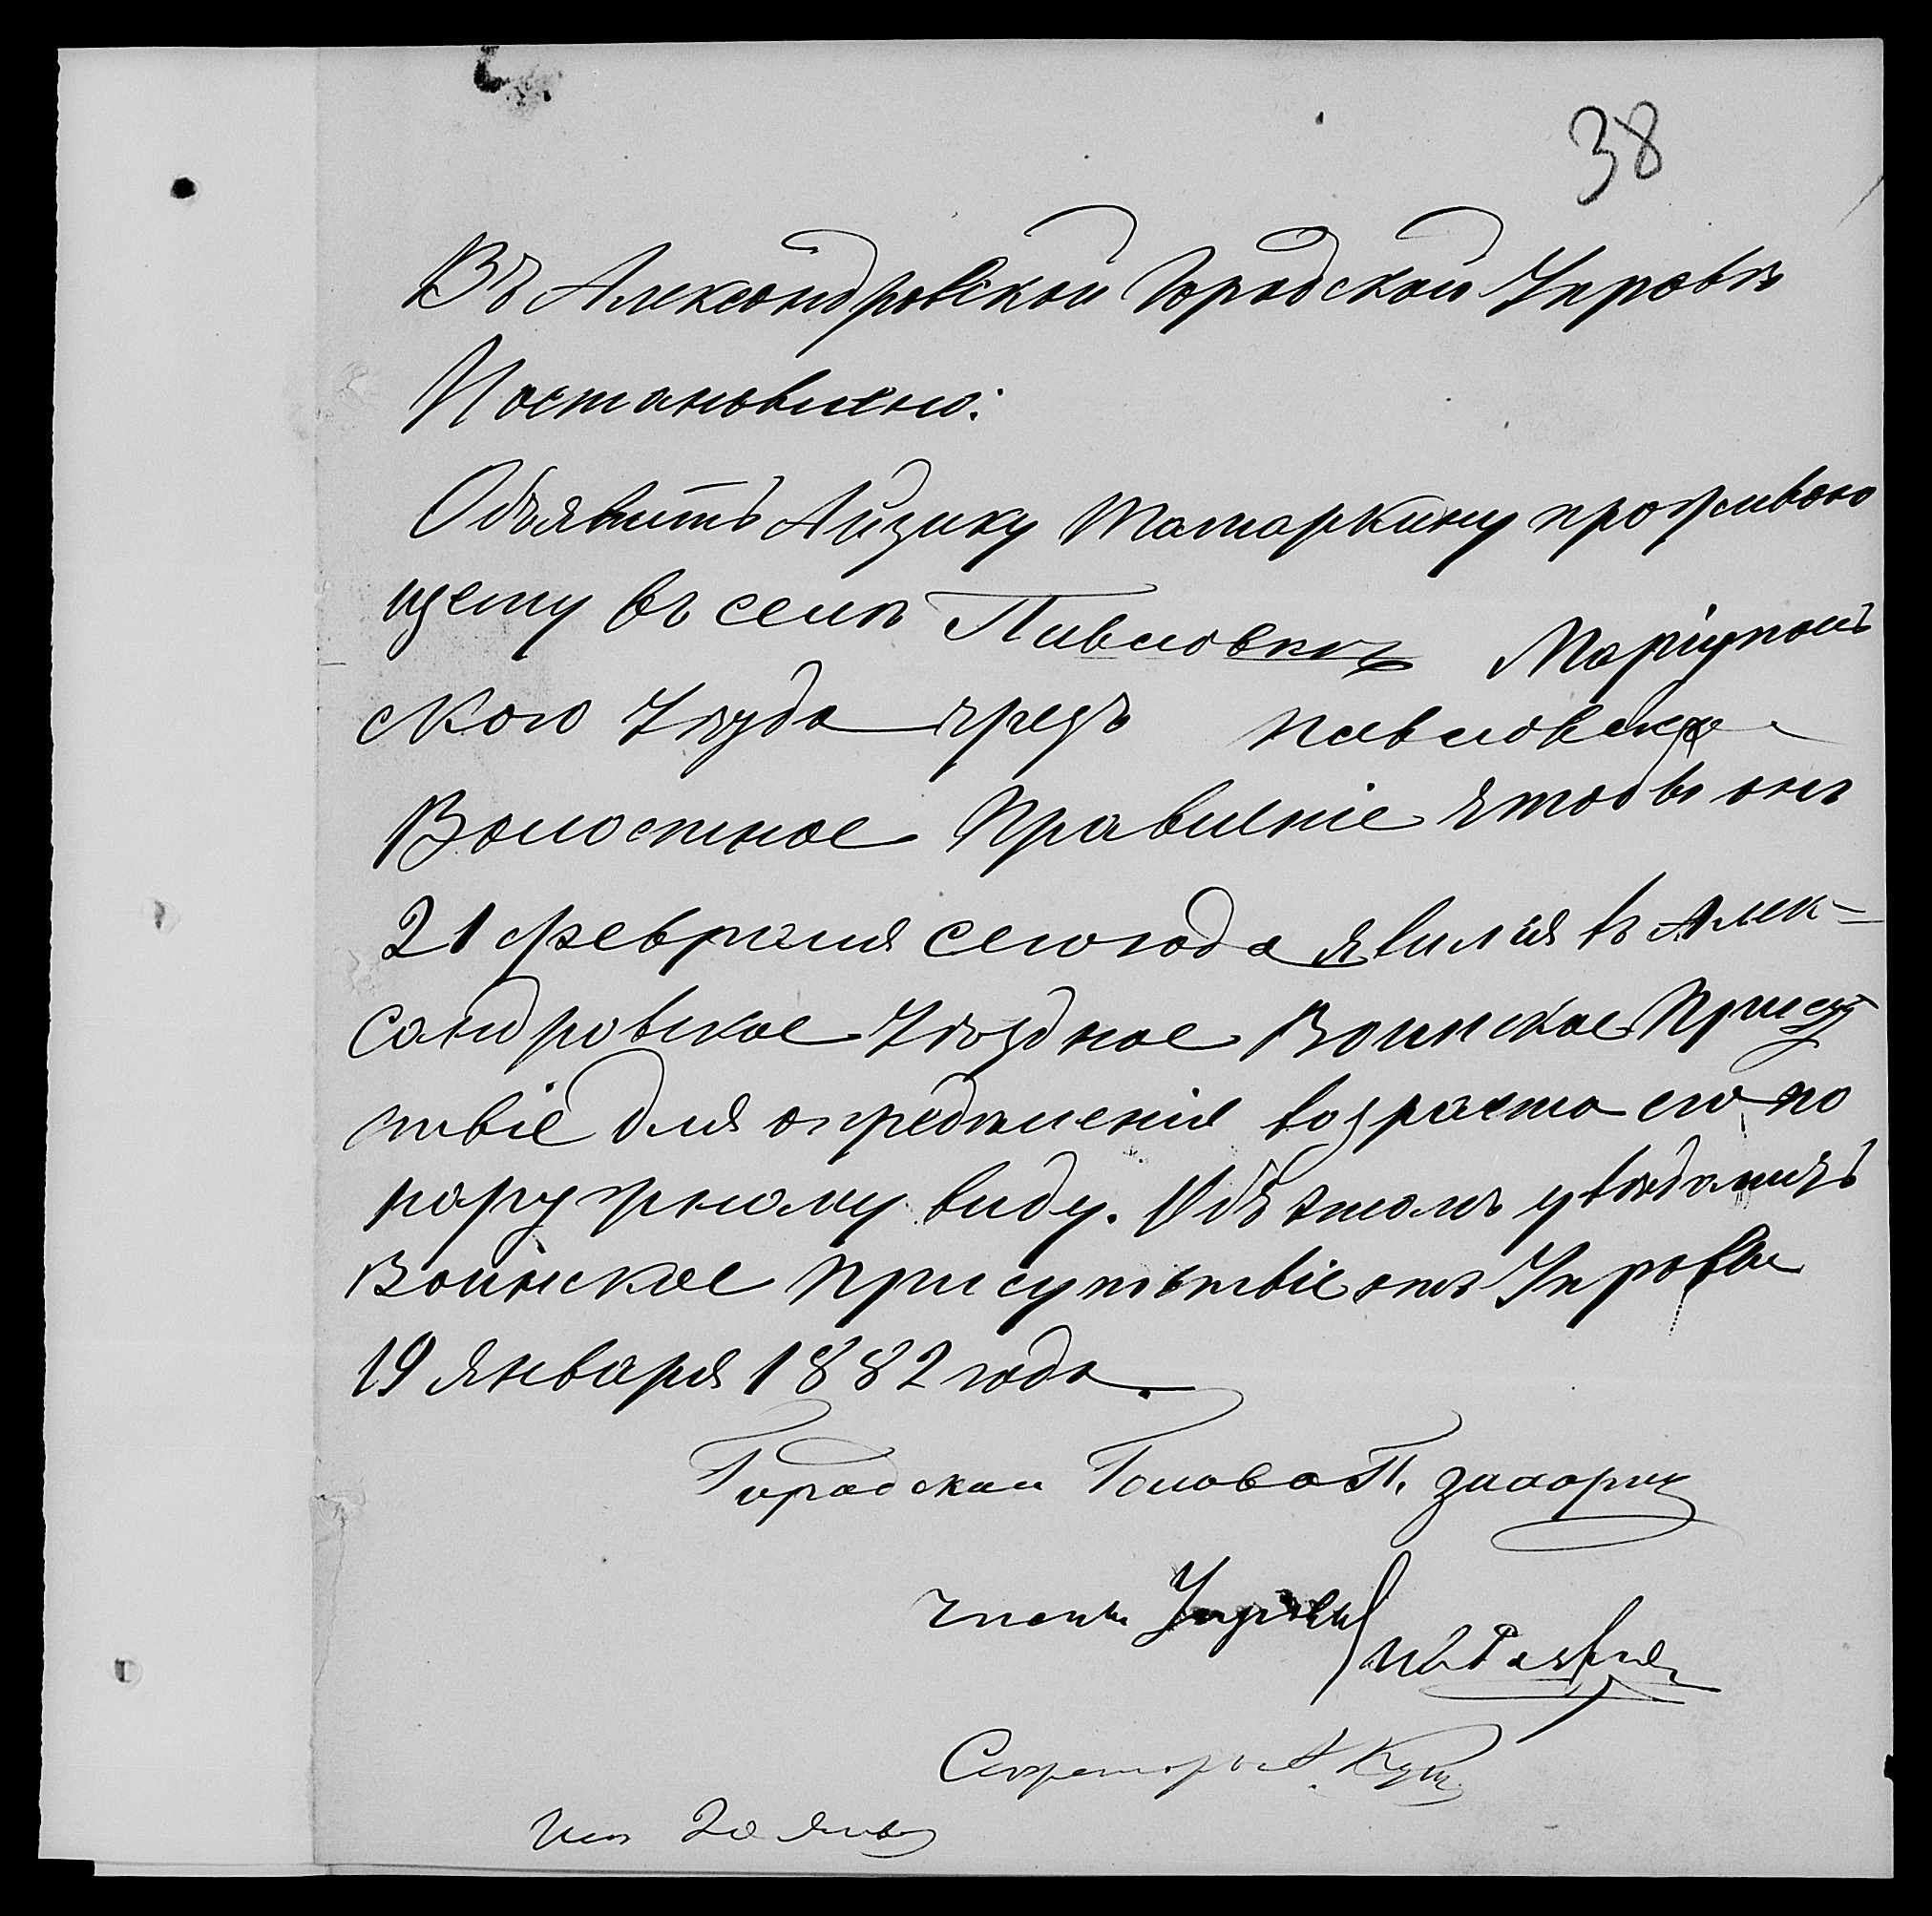 38
Въ Александровской Городской Управѣ
Постановлено:
Объявить Айзику Татаркину проживаю
щему въ селѣ Павловкѣ Маріуполь
скаго Уѣзда чрезъ Павловское
Волостное Правленіе чтобы онъ
21 февраля сего года явился въ Алек-
сандровское Уѣздное Воинское Присут
ствіе для опредѣленія возраста его по
наружному виду. Объ этомъ увѣдомить
Воинское Присутствіе отъ Управы
19 Января 1882 года.
Городской Голова П. Захарин
Члены Управы
Секретарь А. Кущ
Исп 20 Янв